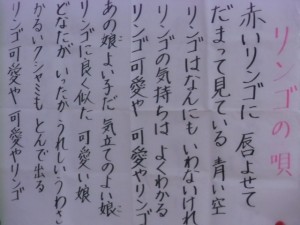 リンゴの唄
赤いリンゴに 唇よせて
だまって見ている 青い空
リンゴはなんにも いわないけれ
リンゴの気持ちは よくわかる
リンゴ可愛や 可愛やリンゴ
あの娘よい子だ 気立てのよい娘
リンゴに良く似た 可愛い娘
どなたが いったか うれしいうわさ
かるいクシャミも とんで出る
リンゴ可愛や 可愛やリンゴ